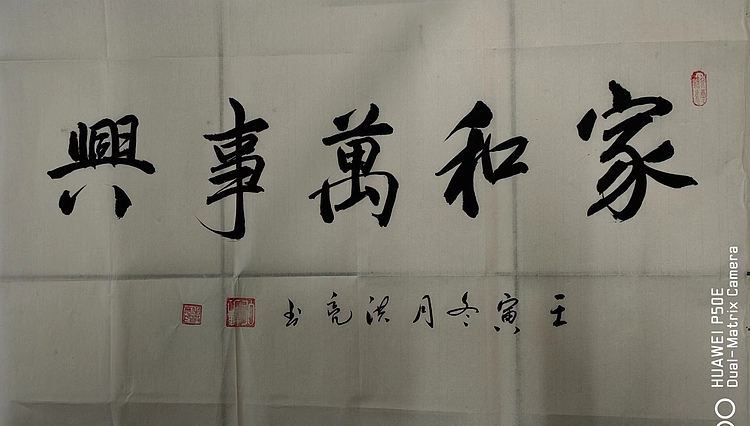 家和萬事興
壬寅冬月洪亮书
HUAWEI P50E
Dual-Matrix Camera